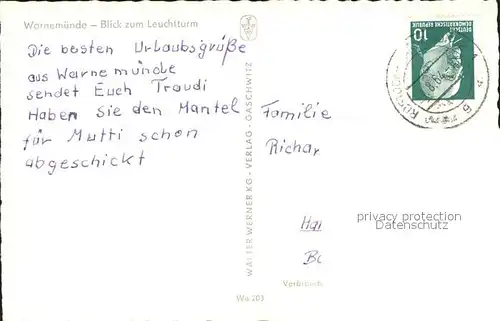 Warnemünde – Blick zum Leuchtturm
Die besten Urlaubsgrüße
aus Warnemünde
sendet Euch Traudi
Haben Sie den Mantel
für Mutti schon
abgeschickt
WALTER WERNER KG - VERLAG - GASCHWITZ
DEUTSCHE
DEMOKRATISCHE REPUBLIK
10
Familie
Richar
privacy protection
Datenschutz
Wa 203